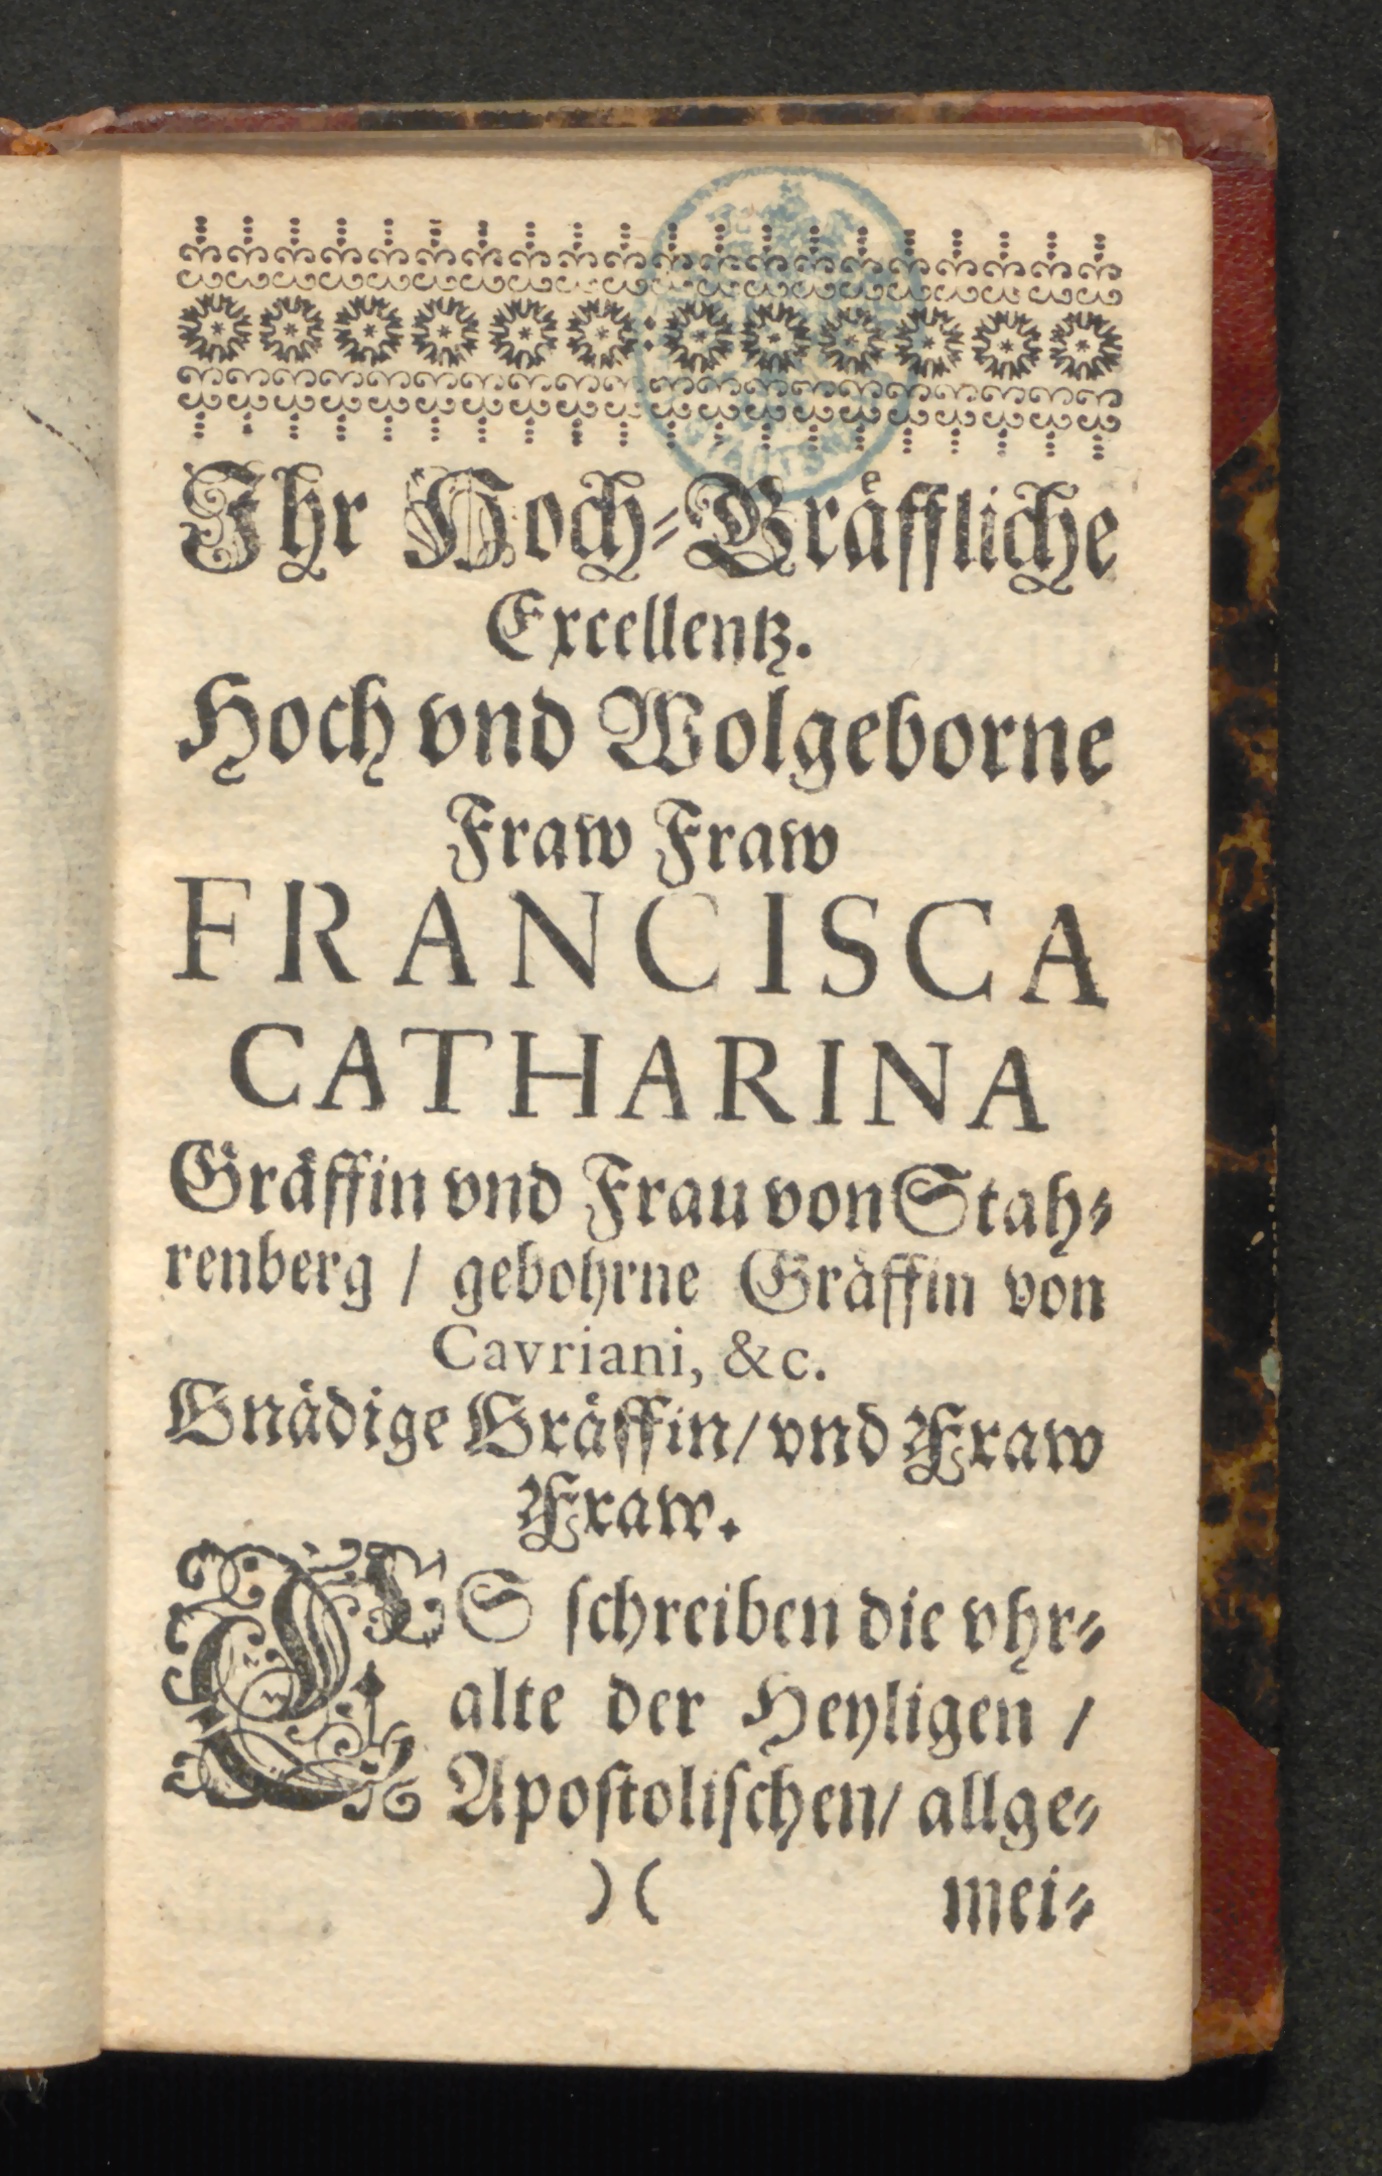 Ihr Hoch-Gräffliche
Excellentz.
Hoch vnd Wolgeborne
Fraw Fraw
FRANCISCA
CATHARINA
Gräffin vnd Frau von Stah-
renberg / gebohrne Gräffin von
Cavriani, &c.
Gnädige Gräffin/ vnd Fraw
Fraw.
ES schreiben die vhr-
alte der Heyligen /
Apostolischen/ allge-
)(
mei-